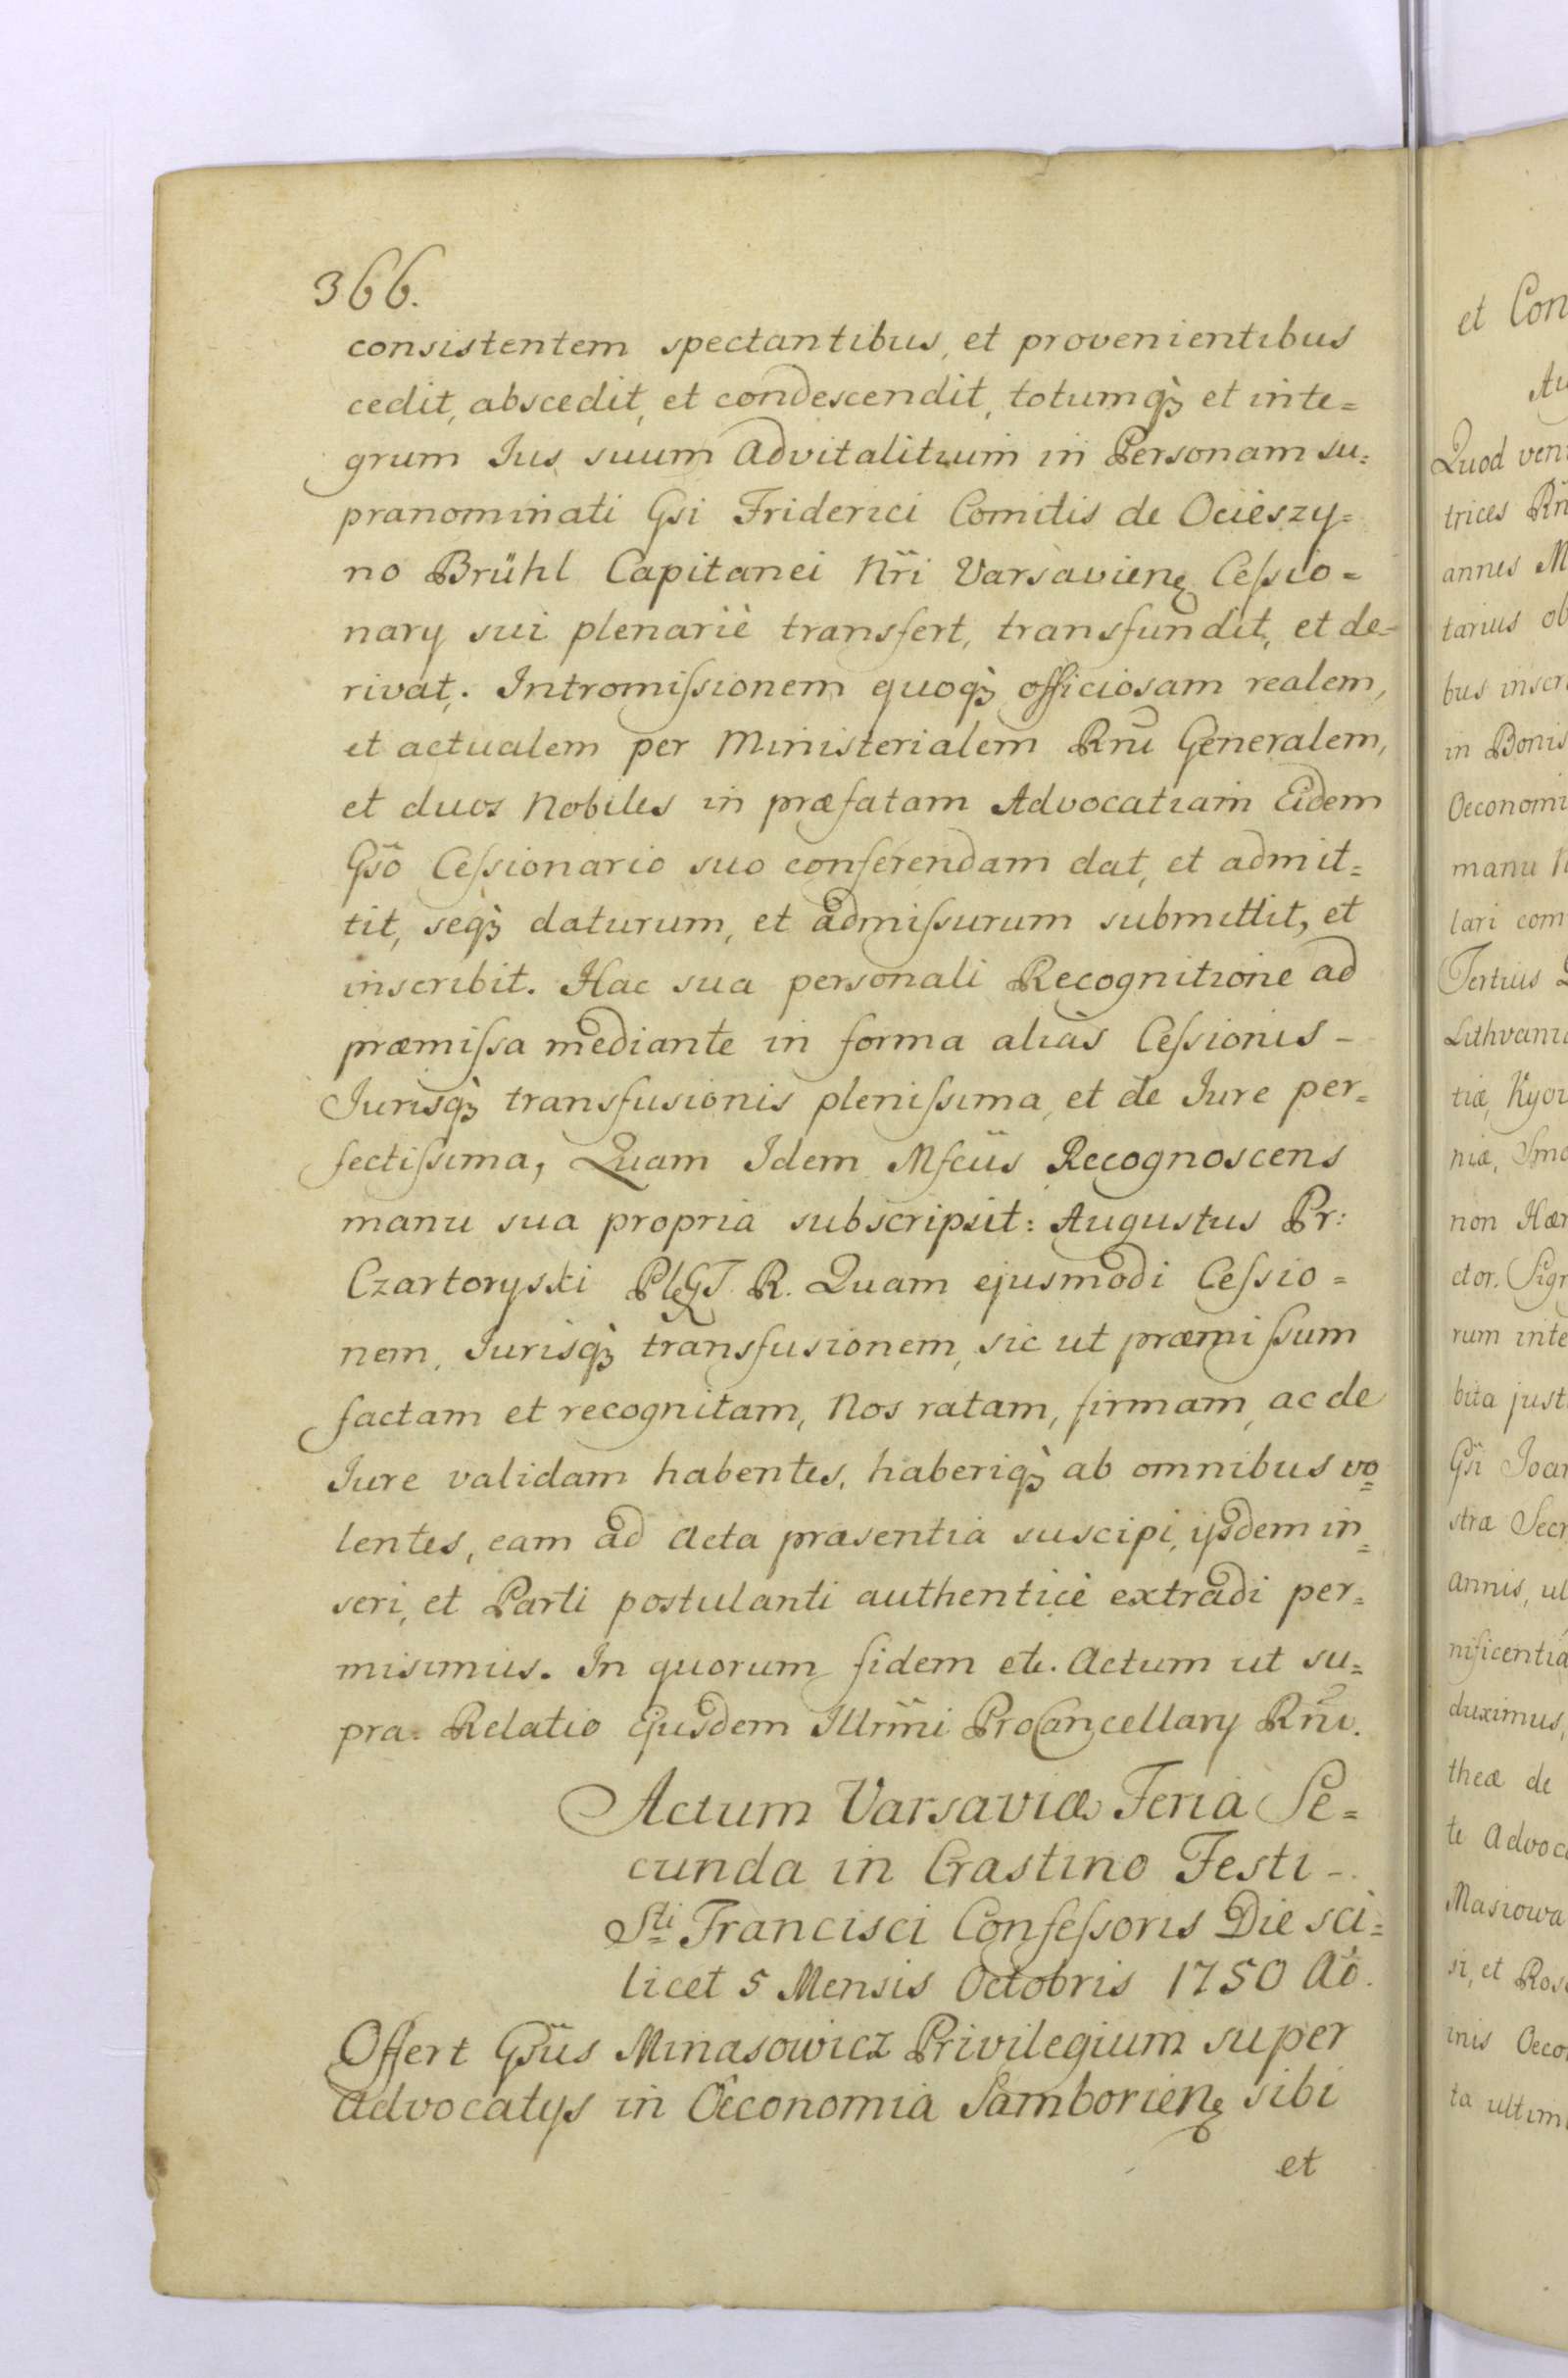 366.
consistentem spectantibus, et provenientibus
cedit, abscedit, et condescendit, totumq́; et inte=
grum Jus suum Advitalitium in Personam su=
pranominati Gsi Friderici Comitis de Ocieszy=
no Brühl Capitanei Nri Varsavien̄ Ceſsio=
nary sui plenariè transfert, transfundit, et de=
rivat. Intromiſsionem quoq̀; officiosam realem,
et actualem per Ministerialem Rni Generalem,
et duos Nobiles in præfatam Advocatiam Eidem
Gso Ceſsionario suo conferendam dat, et admit=
tit, seq̀; daturum, et admiſsurum submittit, et
inscribit. Hac sua personali Recognitione ad
præmiſsa mediante in forma alias Ceſsionis -
Jurisq̀; transfusionis pleniſsima, et de Jure per=
fectiſsima, Quam Idem Mfcus Recognoscens
manu sua propria subscripsit: Augustus Pr:
Czartoryski PłGT. R. Quam ejusmodi Ceſsio=
nem, Jurisq̀; transfusionem, sic ut præmiſsum
factam et recognitam, Nos ratam, firmam, ac de
Jure validam habentes, haberiq̀; ab omnibus vo=
lentes, eam ad Acta præsentia suscipi, ijsdem in=
seri, et Parti postulanti authenticè extradi per=
misimus. In quorum fidem etc. Actum ut su=
pra. Relatio Ejusdem Illrmi ProCancellary Rni.
Actum Varsaviæ Feria Se=
cunda in Crastino Festi -
Sti Francisci Confeſsoris Die sci=
licet 5 Mensis Octobris 1750 Aō.
Offert Gsus Minasowicz Privilegium super
Advocatys in Œconomia Samborien̄ sibi
et
et Con
Au
Quod veni
trices Rñ
annes M
tarius ob
bus inscr
in Bonis
Oeconomi
manu N
lari com
Tertius
Lithvania
tiæ, Kyov
niæ, Smo
non Hær
ctor. Sigr
rum inte
bita just
Gsi Joan
stra Secr
annis, ul
nificentia
duximus,
theæ de
te Advoca
Masiowa
si, et Ros
inis Oeco
ta ultim